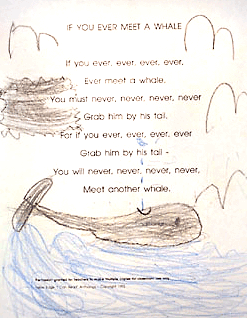 IF YOU EVER MEET A WHALE
If you ever, ever, ever, ever,
Ever meet a whale,
You must never, never, never, never
Grab him by his tail.
For if you ever, ever, ever, ever
Grab him by his tail -
You will never, never, never, never,
Meet another whale.
Permission granted for teachers to make multiple copies for classroom use only